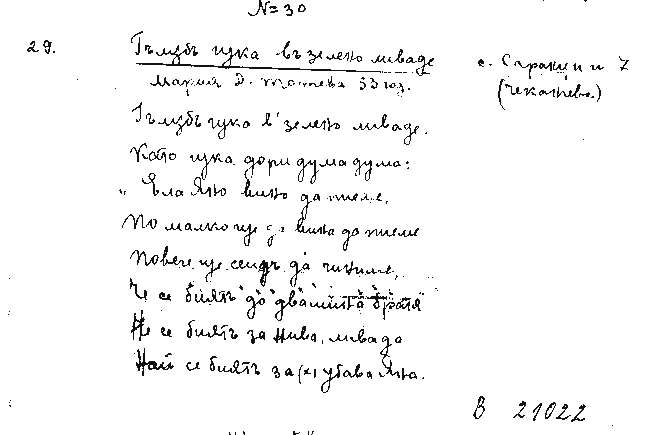 N=30
29. Гъмзъ цука въ зелено ливаде
с. Саранци и Z
Мария Д. Тотева 53 год.
(Чеканчево.)
Гъмзъ цука в' зелено ливаде.
Като цука дори дума дума:
„ Ела Яно вино да пиеме,
По малко ще да вина да пиеме
Повече ще сеидъ да чиниме,
Че се биятъ до двамина братя
Не се биятъ за нива, ливада
Най се биятъ за (х) убава Яна.
В 21022